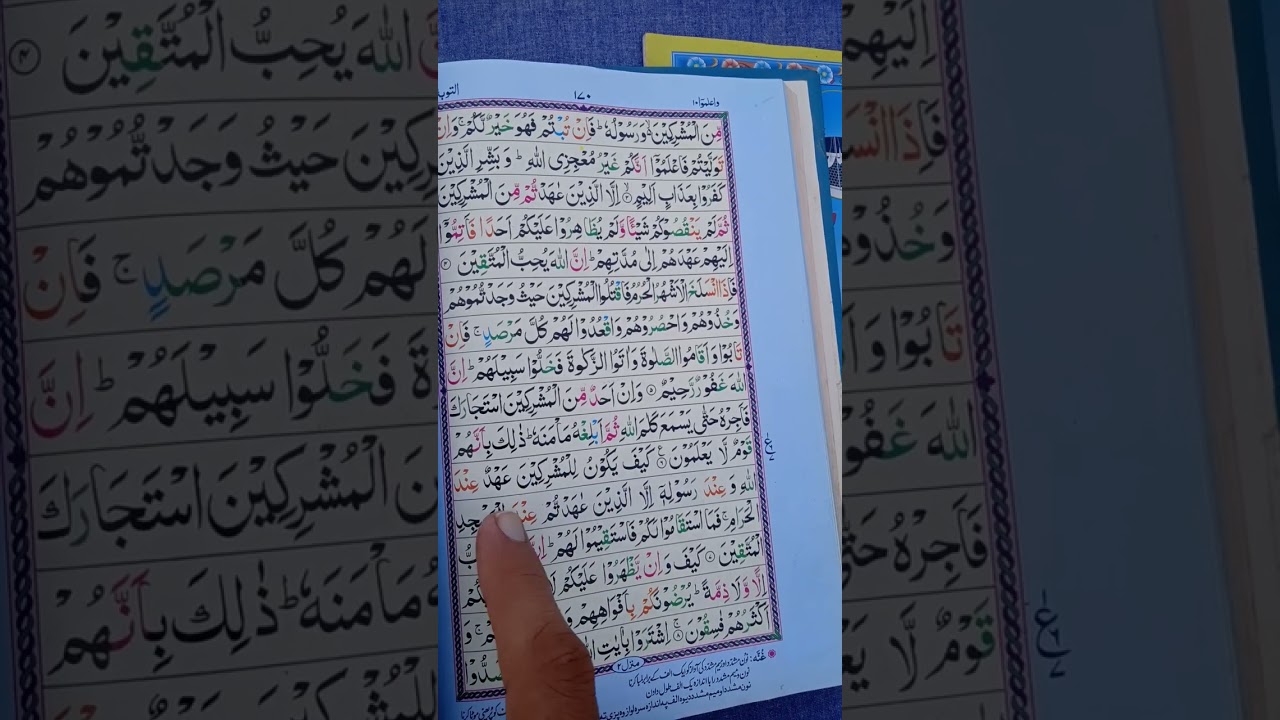 التوب
١٧٠
واعلموا ١٠
مِّنَ الْمُشْرِكِيْنَ ۙ وَ رَسُوْلُهٗ ؕ فَاِنْ تُبْتُمْ فَهُوَ خَيْرٌ لَّكُمْ ۚ وَاِنْ
تَوَلَّيْتُمْ فَاعْلَمُوْۤا اَنَّكُمْ غَيْرُ مُعْجِزِى اللّٰهِ ؕ وَ بَشِّرِ الَّذِيْنَ
كَفَرُوْا بِعَذَابٍ اَلِيْمٍ ۙ۳ اِلَّا الَّذِيْنَ عٰهَدْتُّمْ مِّنَ الْمُشْرِكِيْنَ
ثُمَّ لَمْ يَنْقُصُوْكُمْ شَيْـًٔا وَّلَمْ يُظَاهِرُوْا عَلَيْكُمْ اَحَدًا فَاَتِمُّوْۤا
اِلَيْهِمْ عَهْدَهُمْ اِلٰى مُدَّتِهِمْ ؕ اِنَّ اللّٰهَ يُحِبُّ الْمُتَّقِيْنَ ۴
فَاِذَا انْسَلَخَ الْاَشْهُرُ الْحُرُمُ فَاقْتُلُوا الْمُشْرِكِيْنَ حَيْثُ وَجَدْتُّمُوْهُمْ
وَ خُذُوْهُمْ وَ احْصُرُوْهُمْ وَ اقْعُدُوْا لَهُمْ كُلَّ مَرْصَدٍ ۚ فَاِنْ
تَابُوْا وَ اَقَامُوا الصَّلٰوةَ وَ اٰتَوُا الزَّكٰوةَ فَخَلُّوْا سَبِيْلَهُمْ ؕ اِنَّ
اللّٰهَ غَفُوْرٌ رَّحِيْمٌ ۵ وَ اِنْ اَحَدٌ مِّنَ الْمُشْرِكِيْنَ اسْتَجَارَكَ
فَاَجِرْهُ حَتّٰى يَسْمَعَ كَلٰمَ اللّٰهِ ثُمَّ اَبْلِغْهُ مَاْمَنَهٗ ؕ ذٰلِكَ بِاَنَّهُمْ
قَوْمٌ لَّا يَعْلَمُوْنَ ۶ كَيْفَ يَكُوْنُ لِلْمُشْرِكِيْنَ عَهْدٌ عِنْدَ
اللّٰهِ وَ عِنْدَ رَسُوْلِهٖۤ اِلَّا الَّذِيْنَ عٰهَدْتُّمْ عِنْدَ الْمَسْجِدِ
الْحَرَامِ ۚ فَمَا اسْتَقَامُوْا لَكُمْ فَاسْتَقِيْمُوْا لَهُمْ ؕ
الْمُتَّقِيْنَ ۷ كَيْفَ وَ اِنْ يَّظْهَرُوْا عَلَيْكُمْ
اِلًّا وَّ لَا ذِمَّةً ؕ يُرْضُوْنَكُمْ بِاَفْوَاهِهِمْ
اَكْثَرُهُمْ فٰسِقُوْنَ ۸ اِشْتَرَوْا بِاٰيٰتِ
منزل ۲